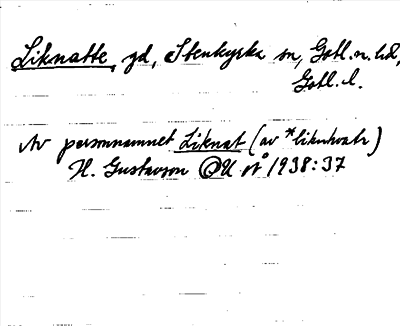 Liknatte, gd, Stenkyrka sn, Gotl. n. hd,
Gotl. l.
Av personnamnet Liknat (av *liknhvatr)
H. Gustavson OU så 1938:37